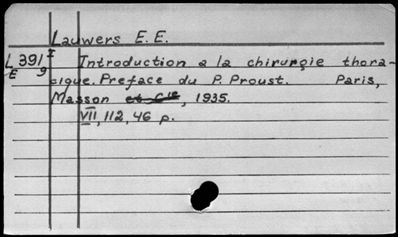 Lauwers E. E.
L 391 I Introduction a la chirurgie thora-
E 9 cique. Preface du P. Proust. Paris,
Masson et Cie, 1935.
VII, 112, 46 p.